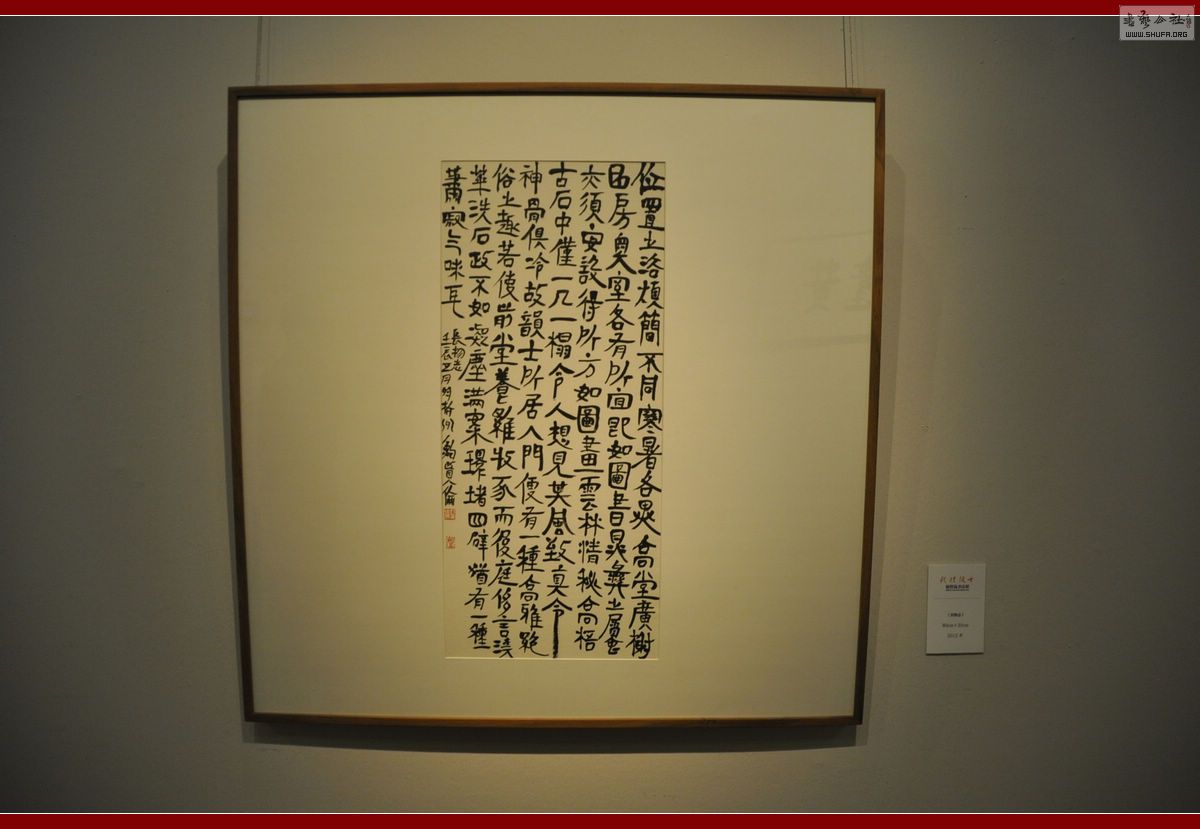 位置之洛煩簡不同寒暑各異高堂廣榭
曲房奧室各有所宜即如圖書晁彝之屬
亦須安設得所方如圖畫雲林清秘高梧
古石中僅一几一榻令人想見其風致真令
神骨俱冷故韻士所居入門便有一種高雅絕
俗之趣若使前堂養雞牧豕而後庭侈言澆
華洗石政不如凝塵滿案環堵四壁猶有一種
蕭寂气味耳
長物志
壬辰
WWW.SHUFA.ORG